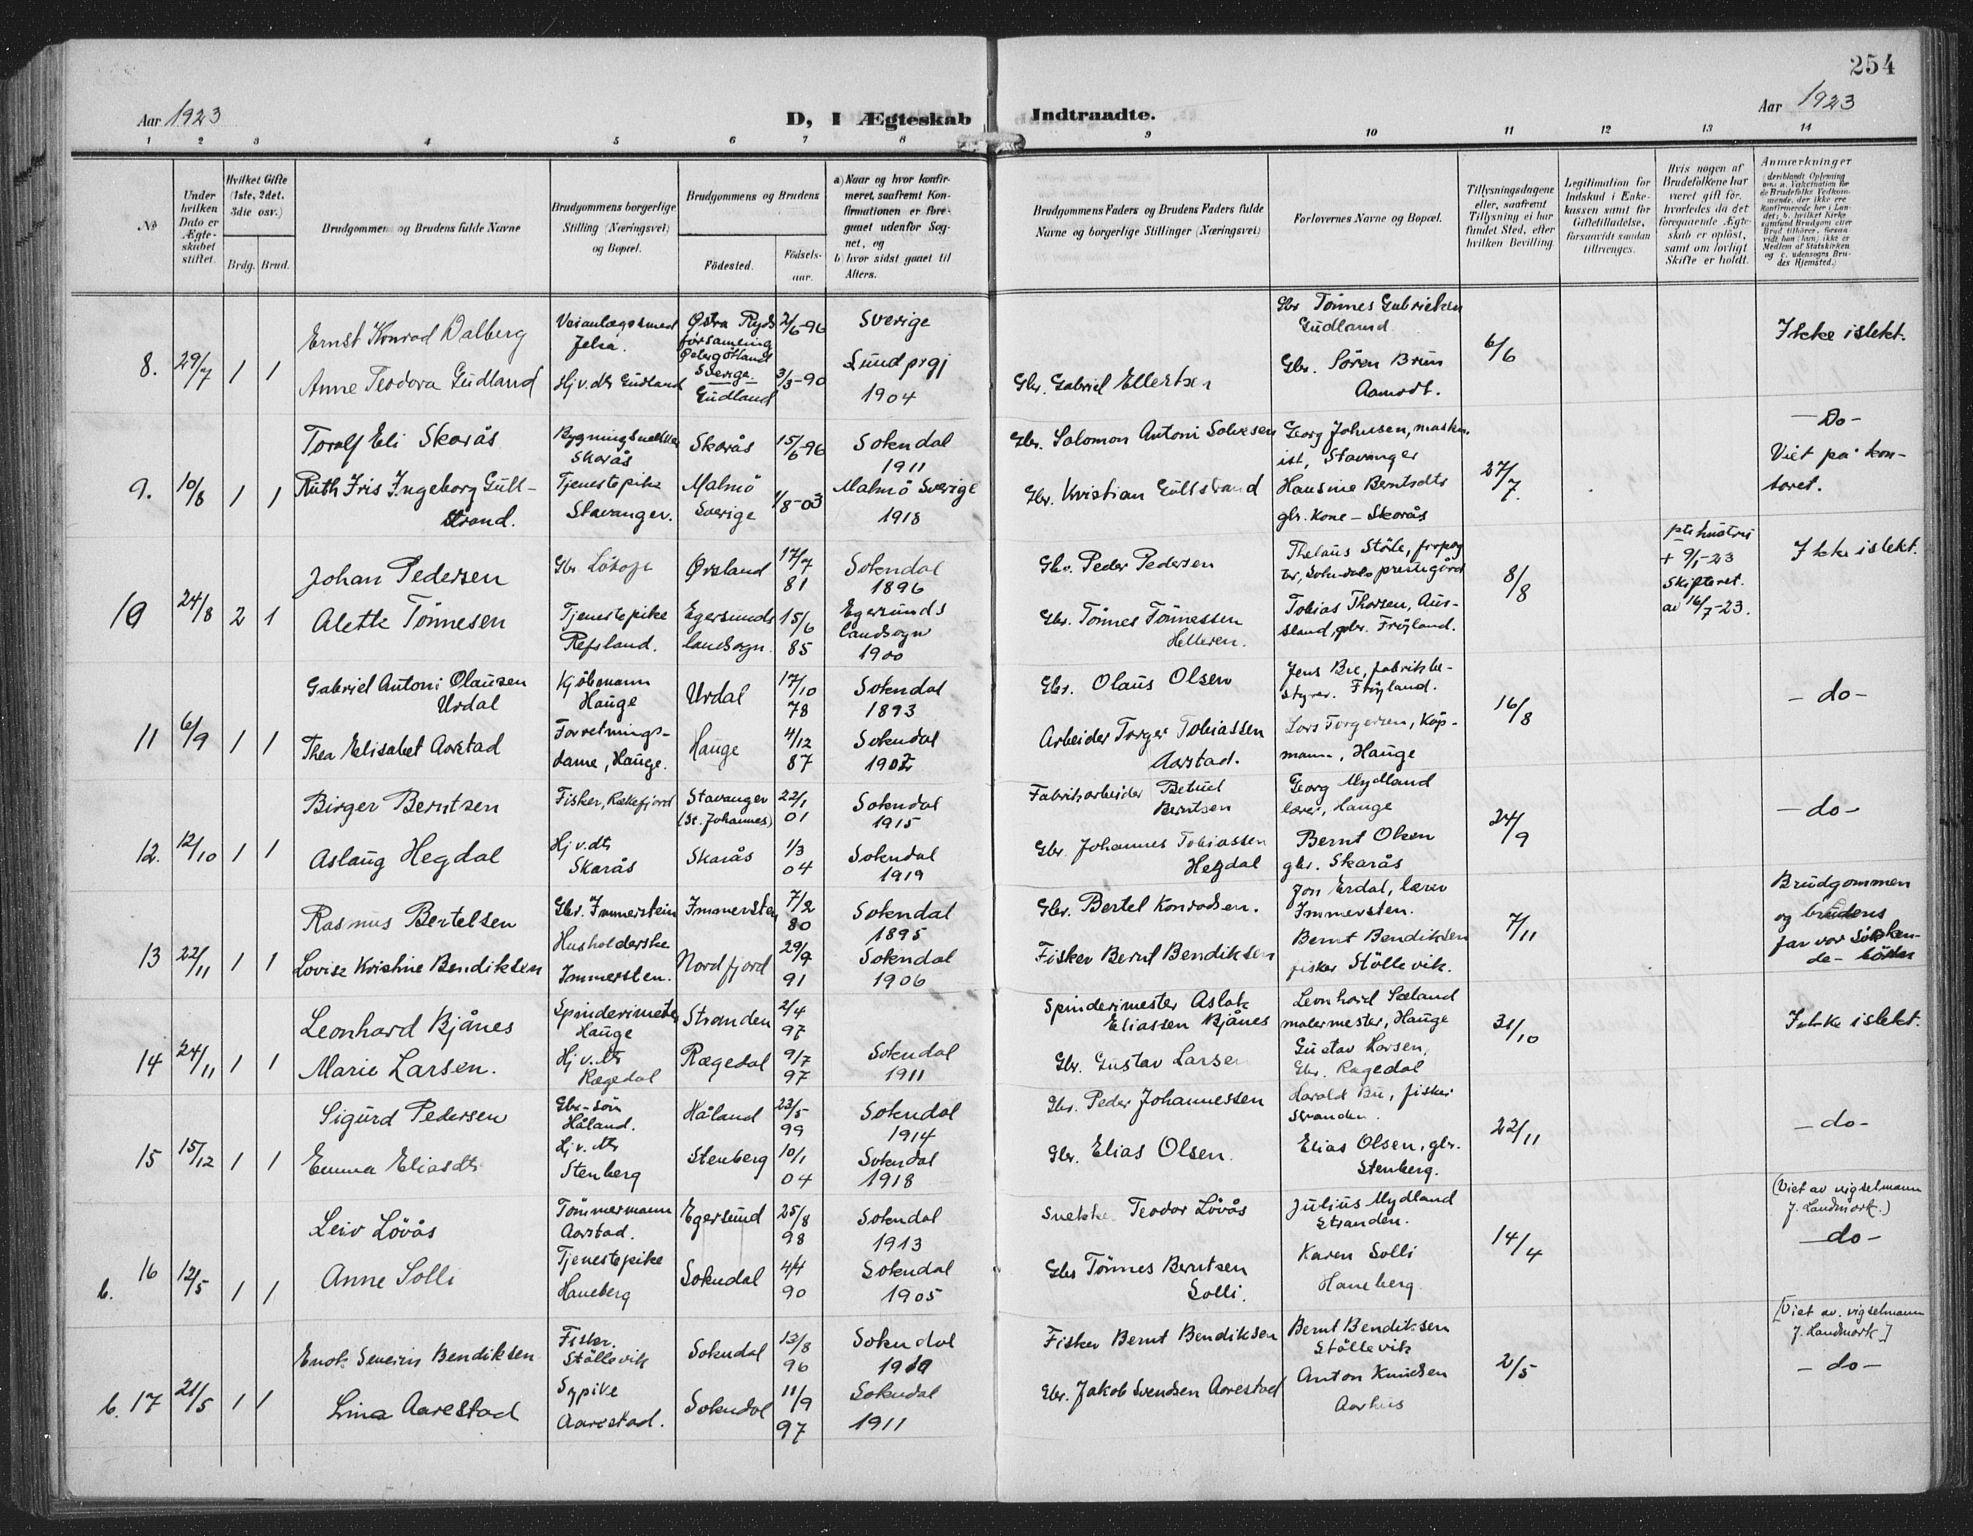 254
Aar 1923
D, I Ægteskab Indtraadte.
Aar 1923
1 2 3 4 5 6 7 8 9 10 11 12 13 14
№
Under hvilken Dato er Ægteskabet stiftet.
Hvilket Gifte (1ste, 2det, 3die osv.)
Brdg. Brud.
Brudgommens og Brudens fulde Navne
Brudgommens borgerlige Stilling (Næringsvei) og Bopæl.
Brudgommens og Brudens
Fødested.
Fødselsaar.
a) Naar og hvor konfirmeret, saafremt Konfirmationen er foregaaet udenfor Sognet, og
b) hvor sidst gaaet til Alters.
Brudgommens Faders og Brudens Faders fulde Navne og borgerlige Stillinger (Næringsvei)
Forlovernes Navne og Bopæl.
Tillysningsdagene eller, saafremt Tillysning ei har fundet Sted, efter hvilken Bevilling.
Legitimation for Indskud i Enkekassen samt for Giftetilladelse, forsaavidt saadan tiltrænges.
Hvis nogen af Brudefolkene har været gift før, hvorledes da det foregaaende Ægteskab er opløst, samt om lovligt Skifte er holdt.
Anmærkninger
8. 29/7 1 1
Ernst Konrad Dalberg
Veianlægssmed Jelsa.
Østra Ryds församling Östergötland Sverige.
2/6-96
Sverige
Gbr Tönnes Gabrielsen Gudland
6/6
Ikke i slekt.
Anne Teodora Gudland
Hjv. dtr Gudland
Gudland
3/3-90
Lund prgj 1904
Gbr. Gabriel Ellertsen
Gbr. Sören Brun Aamodt.
9. 10/8 1 1
Toralf Eli Skarås
Skarås
Skarås
15/6-96
Sokndal 1911
Gbr. Salomon Antoni Salvesen
Georg Johnsen, maskinist, Stavanger
27/7.
- Do -
Viet på kontoret.
Ruth Iris Ingeborg Gullstrand.
Tjenestepike Stavanger.
Malmö Sverige
1/8-03
Malmö Sverige 1918
Gbr. Kristian Gullstrand
Hansine Berntsdtr gbr. kone - Skarås
10 24/8 2 1
Johan Pedersen
Gbr
Øvsland
17/7 81
Sokndal 1896
Gbr. Peder Pedersen
Thelaus Störle, Sokndals prestegård
8/8
+ 9/1-23 Skifteret. av 16/7-23.
Ikke i slekt.
Alette Tönnesen
Tjenestepike Refsland.
Egersunds landsogn.
15/6 85
Egersunds landsogn 1900
Gbr. Tönnes Tönnessen Helleren.
Tobias Thorsen, Ausland, gbr. Fröyland.
11 6/9 1 1
Gabriel Antoni Olausen Urdal
Kjöbmann Hauge
Urdal
17/10 78
Sokndal 1893
Gbr. Olaus Olsen
Jens Bu, fabrikbestyrer. Fröyland.
16/8
- do -
Thea Elisabet Aarstad
Forretningsdame, Hauge.
Hauge
4/12 87
Sokndal 1902
Arbeider Torger Tobiassen Aarstad.
Lars Torgersen, Köpmann, Hauge
12. 12/10 1 1
Birger Berntsen
Fisker, Rækefjord
Stavanger (St. Johannes)
22/1 01
Sokndal 1915
Fabrikarbeider Betuel Berntsen
Georg Mydland lærer, Hauge
24/9
- do -
Aslaug Hegdal
Hjv. dtr Skarås
Skarås
1/3 04
Sokndal 1919
Gbr. Johannes Tobiassen Hegdal
Bernt Olsen gbr. Skarås
13 22/11 1 1
Rasmus Bertelsen
Gbr. Immerstein
Immersten
7/2 80
Sokndal 1895
Gbr. Bertel Konradsen.
Jon Erdal, lærer Immersten.
7/11
Brudgommen og brudens far var Söskende-börn
Lovise Kristine Bendiksen
Husholderske Immersten.
Nordfjord
29/9 91
Sokndal 1906
Fisker Bernt Bendiksen
Bernt Bendiksen fisker Stöllevik.
14 24/11 1 1
Leonhard Bjånes
Spinderimester Hauge
Stranden
2/4 97
Spinderimester Aslak Eliassen Bjånes
Leonhard Sæland malermester, Hauge
31/10
Ikke i slekt.
Marie Larsen.
Hjv. dtr Rægedal
Rægedal
9/7 97
Sokndal 1911
Gbr. Gustav Larsen
Gustav Larsen, Gbr. Rægedal
15 15/12 1 1
Sigurd Pedersen
Gbr-sön Håland.
Håland
23/5 99
Sokndal 1914
Gbr. Peder Johannessen
Harald Bu, fisker Stranden.
22/11
- do -
Emma Eliasdtr
Hjv. dtr Stenberg
Stenberg
10/1 04
Sokndal 1918
Gbr. Elias Olsen.
Elias Olsen, gbr. Stenberg.
b. 16 12/5 1 1
Leiv Lövås
Tömmermann Aarstad.
Egersund
25/8 98
Sokndal 1913
Snekker Teodor Lövås
Julius Mydland Stranden.
14/4
(Viet av vigselmann J. Landmark.)
- do -
Anne Solli
Tjenestepike Haneberg
Sokndal
4/4 90
Sokndal 1905
Gbr Tönnes Berntsen Solli.
Karen Solli Haneberg
b. 17 21/5 1 1
Enok Severin Bendiksen
Fisker. Stöllevik
Sokndal
13/8 96
Sokndal 1910
Fisker Bernt Bendiksen
Bernt Bendiksen Stöllevik
2/5
[Viet av. vigselmann J. Landmark]
- do -
Lina Aarestad
Sypike Aarestad.
Sokndal
11/9 97
Sokndal 1911
Gbr. Jakob Svendsen Aarestad
Anton Knudsen Aarhus